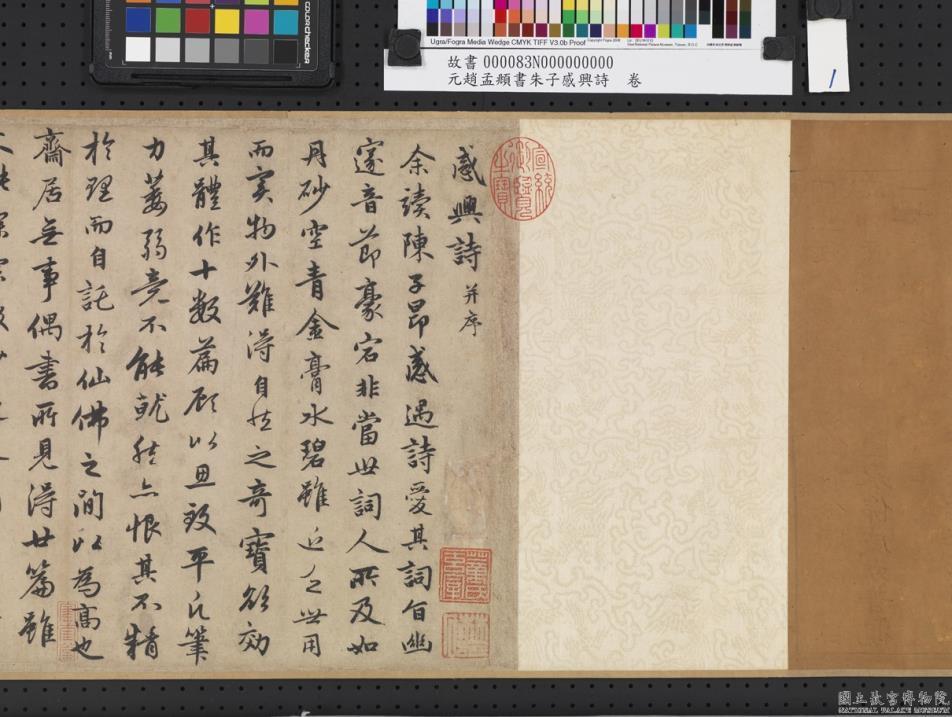 colorchecker
Ugra/Fogra Media Wedge CMYK TIFF V3.0b Proof
故書 000083N000000000
元趙孟頫書朱子感興詩 卷
1
宣統御覽之寶
感興詩并序
余讀陳子昂感遇詩愛其詞旨幽
邃音節豪宕非當世詞人所及如
丹砂空青金膏水碧雖近乏世用
而實物外難得自然之奇寶欲効
其體作十數篇顧以思致平凡筆
力萎弱竟不能就然亦恨其不精
於理而自託於仙佛之間以為高也
齋居無事偶書所見得廿篇雖
國立故宮博物院
NATIONAL PALACE MUSEUM